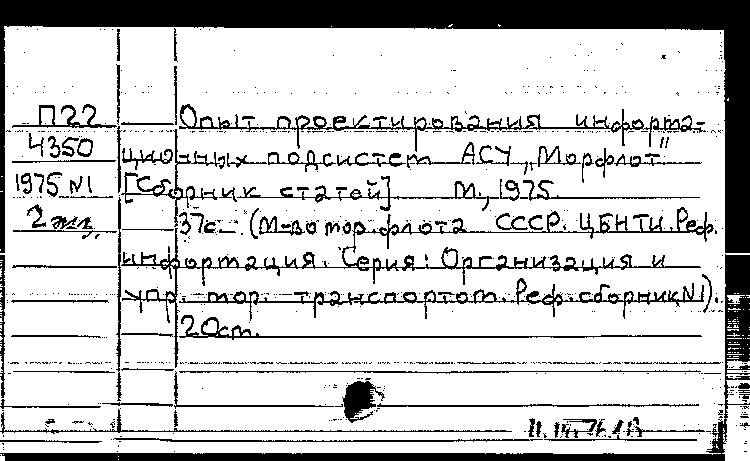 П22
4350
1975 N1
2 экз.
Опыт проектирования информа-
ционных подсистем АСУ „Морфлот"
[Сборник статей]. М., 1975.
37с. (М-во мор. флота СССР. ЦБНТИ. Реф.
информация. Серия: Организация и
упр. мор. транспортом. Реф. сборник N1).
20см.